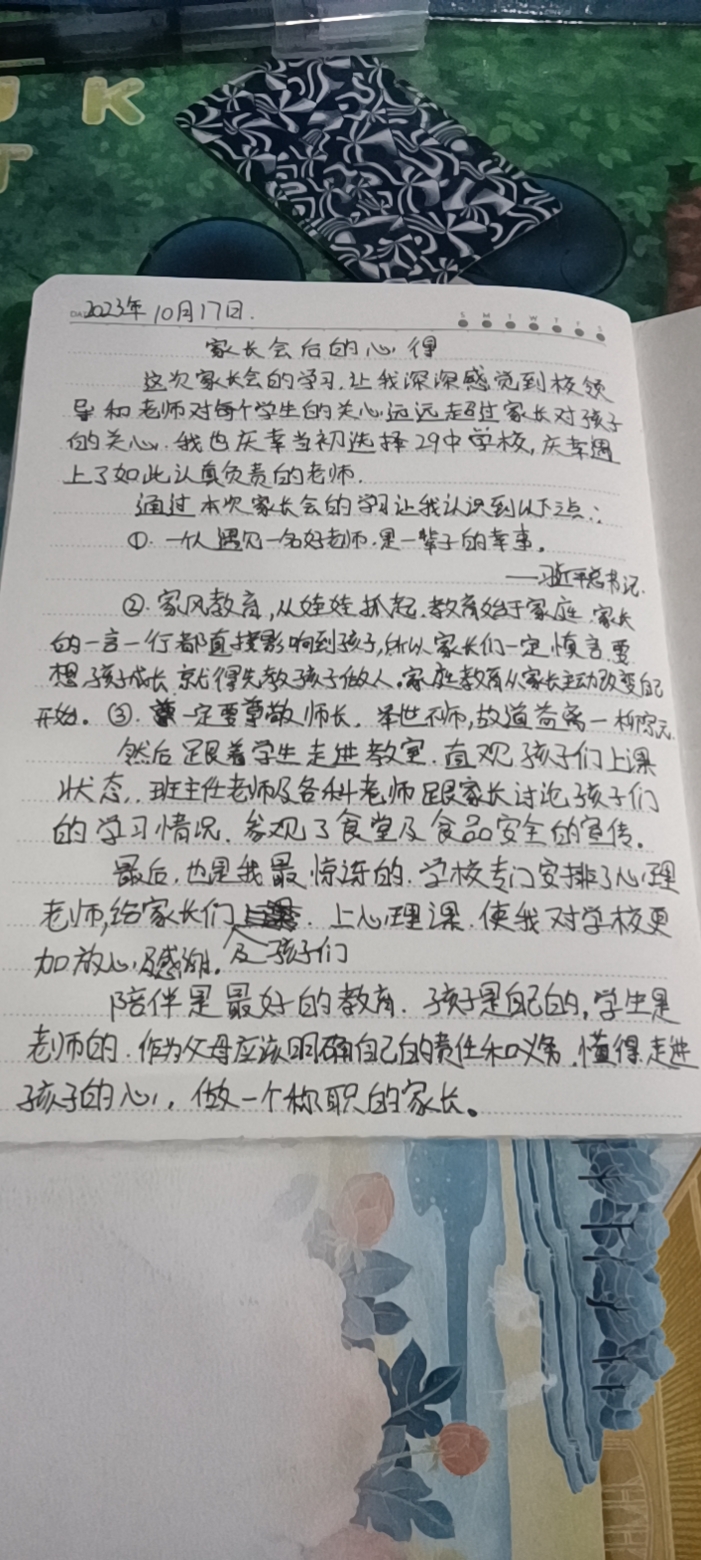 UK
T
2023年10月17日.
S M T W T F S
家长会后的心得
这次家长会的学习,让我深深感觉到校领
导和老师对每个学生的关心远远超过家长对孩子
的关心.我也庆幸当初选择29中学校,庆幸遇
上了如此认真负责的老师.
通过本次家长会的学习让我认识到以下三点:
①.一个人遇见一名好老师.是一辈子的幸事。
——习近平总书记.
②.家风教育,从娃娃抓起.教育始于家庭.家长
的一言一行都直接影响到孩子,所以家长们一定慎言.要
想孩子成长.就得先教孩子做人。家庭教育从家长主动改变自己
开始。③.一定要尊敬师长.举世不师,故道益离—柳宗元.
然后跟着学生走进教室.直观孩子们上课
状态,.班主任老师及各科老师跟家长讨论孩子们
的学习情况.参观了食堂及食品安全的宣传。
最后.也是我最惊讶的.学校专门安排了心理
老师,给家长们及孩子们.上心理课.使我对学校更
加放心及感谢.
陪伴是最好的教育.孩子是自己的,学生是
老师的.作为父母应该明确自己的责任和义务.懂得走进
孩子的心,做一个称职的家长。